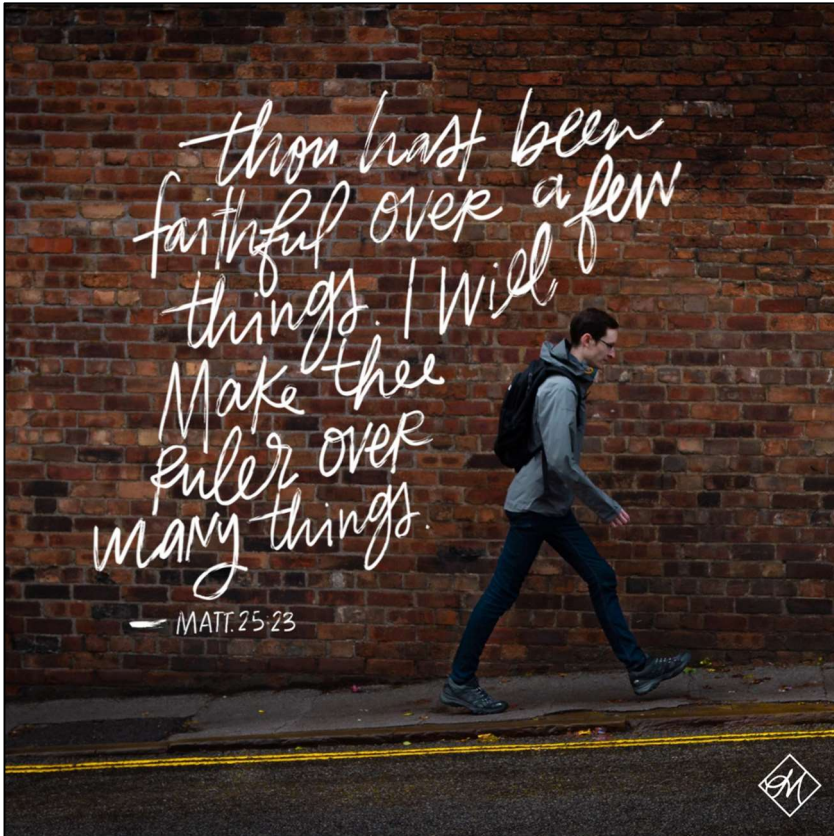 thou hast been
faithful over a few
things. I will
Make thee
Ruler over
many things.
— MATT. 25:23